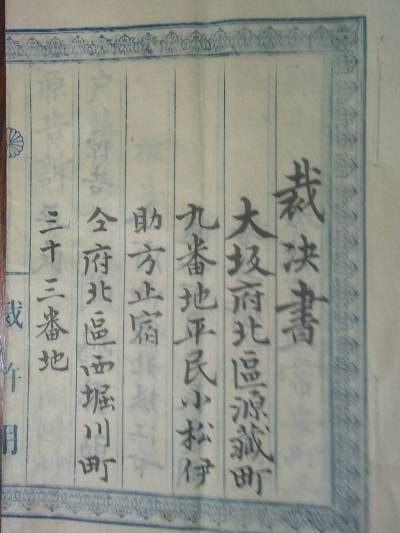 裁決書
大坂府北區源藏町
九番地平民小松伊
助方止宿
仝府北區西堀川町
三十三番地
裁許用